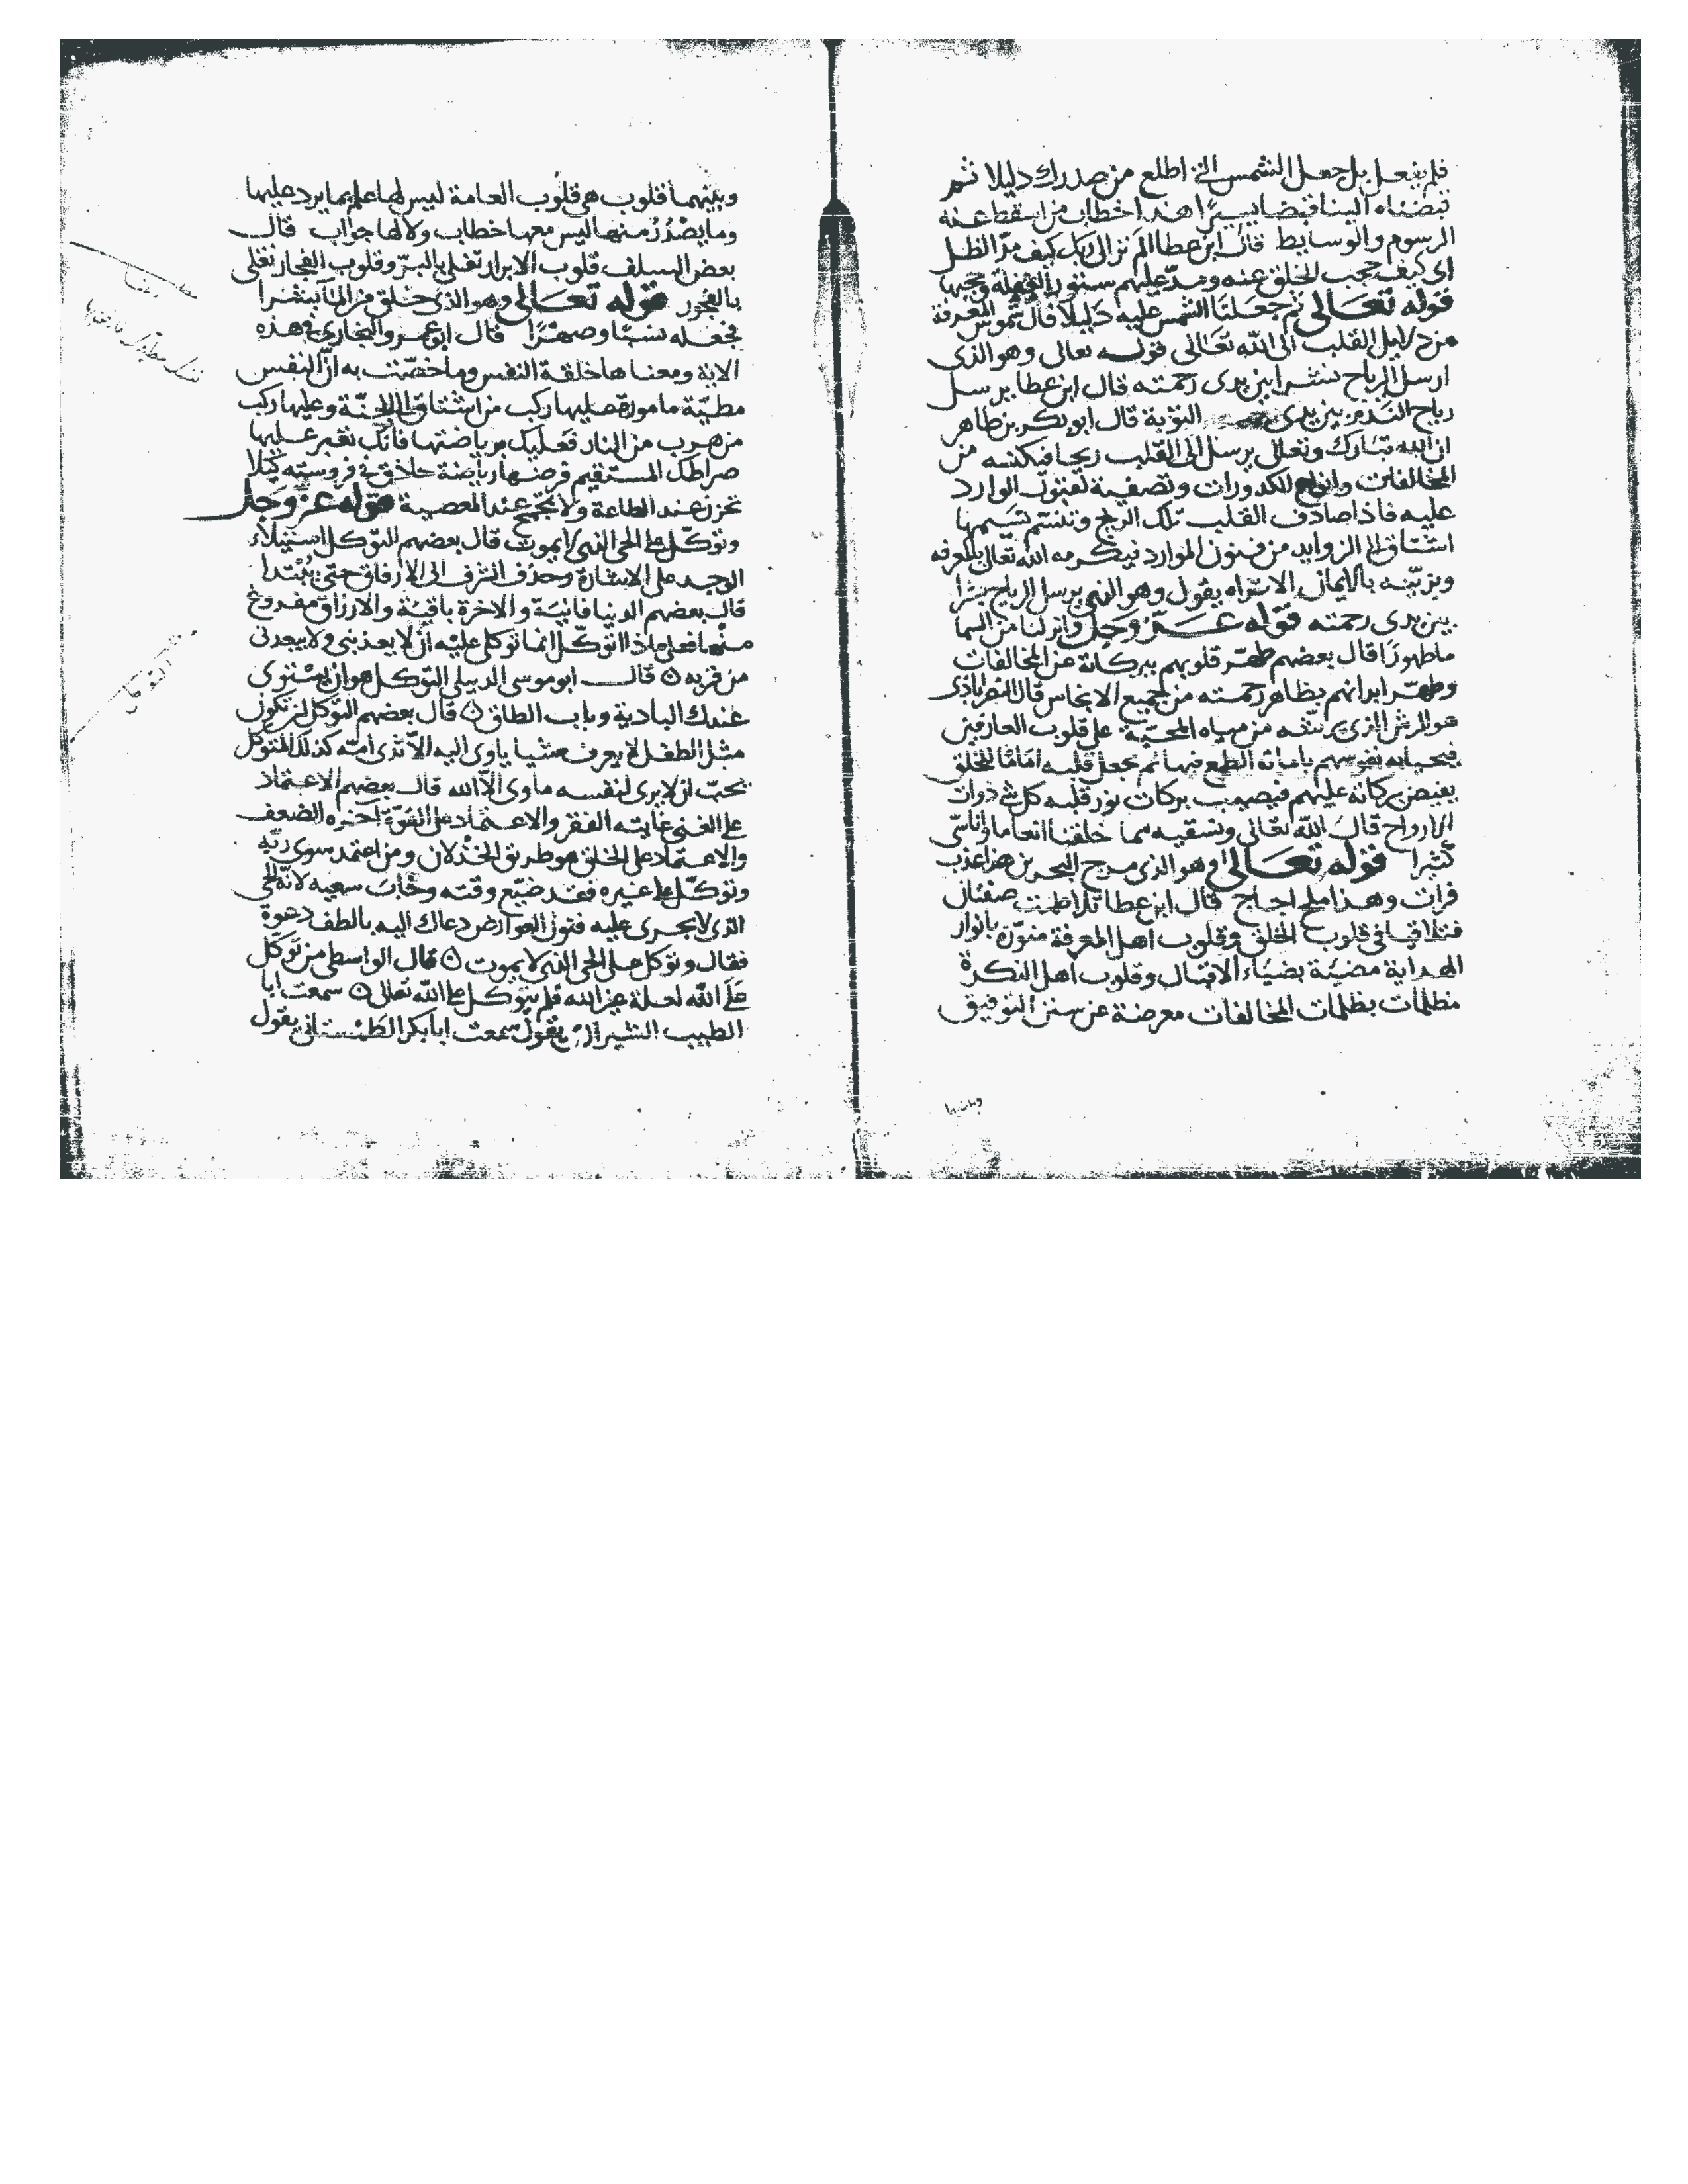 فلم يفعل بل جعل الشمس التى اطلع من صدرك دليلا ثم
قبضناه الينا قبضا يسيرًا هذا خطاب من اسقط عنه
الرسوم والوسايط قال ابن عطا الم تر الى ربك كيف مدّ الظل
اى كيف حجب الخلق عنه ومدّ عليهم ستور الغفلة وحجبها
قوله تعالى ثم جعلنا الشمس عليه دليلا قال شموس المعرفة
من دلايل القلب الى الله تعالى قوله تعالى وهو الذى
ارسل الرياح نشرا بين يدى رحمته قال ابن عطا يرسل
رياح الندم بين يدى التوبة قال ابو بكر بن طاهر
ان الله تبارك وتعالى يرسل الى القلب ريحا فيكنسه من
المخالفات وانواع الكدورات وتصفية لفتون الوارد
عليه فاذا صادف القلب تلك الريح وتنسّم نسيمها
اشتاق الى الزوايد من فنون الموارد فيكرمه الله تعالى بالمعرفه
ويزيّنه بالايمان الا تراه يقول وهو الذى يرسل الرياح بشرا
بين يدى رحمته قوله عزّ وجل وانزلنا من السما
ماطهورًا قال بعضهم طهّر قلوبهم ببركاته عن المخالفات
وطهّر ابدانهم بظاهر رحمته من جميع الانجاس قال النصراباذى
هو الرش الذى يرشّه من مياه المحبّة على قلوب العارفين
فيحيا به نفوسهم باماتة الطبع فيها ثم يجعل قلبه امامًا للخلق
يفيض بركاته عليهم فيصيب بركات نور قلبه كل شى ذوات
الارواح قال الله تعالى ونسقيه مما خلقنا انعاما واناسىّ
كثيرا قوله تعالى وهو الذى مرج البحرين هذا عذب
فرات وهذا ملح اجاج قال ابن عطا تلاطمت صفتان
فتلاقيا فى قلوب الخلق وقلوب اهل المعرفة منوّرة بانوار
الهداية مضيّة بضياء الاقبال وقلوب اهل النكرة
مظلمات بظلمات المخالفات معرضة عن سنن التوفيق
وبينهما
وبينهما قلوب هى قلوب العامة ليس لها علم بما يرد عليها
وما يصْدُرُ منها ليس معها خطاب ولا لها جواب قال
بعض السلف قلوب الابرار تغلى بالبرّ وقلوب الفجار تغلى
بالفجور قوله تعالى وهو الذى خلق من المآ بشرا
فجعله نسبًا وصهرًا قال ابو عمرو البخارى فى هذه
الاية ومعناها خلقة النفس وما خصّت به انّ النفس
مطيّة مامورة عليها ركب من اشتاق الى الجنّة وعليها ركب
من هرب من النار فعليك برياضتها فانّك تعبر عليها
صراطك المستقيم فرضها رياضة حاذق فى فروسيته كيلا
تحزن عند الطاعة ولا تجمح عند المعصية قوله عز وجل
وتوكّل على الحى الذى لا يموت قال بعضهم التوكل استيلآء
الوجد على الاشارة وحذف التزف الى الارفاق حتى يُبْتدا
قال بعضهم الدنيا فانية والاخرة باقية والارزاق مفروغ
منها فعلى ماذا اتوكّل انما توكلى عليه انْ لا يعذبنى ولا يبعدنى
من قربه ۞ قال ابو موسى الدبيلى التوكل هو ان يستوى
عندك البادية وباب الطاق ۞ قال بعضهم التوكل ان تكون
مثل الطفل لا يعرف شيا ياوى اليه الّا ثدى امّه كذلك المتوكل
يجب ان لا يرى لنفسه ماوى الّا الله قال بعضهم الاعتماذ
على الغنى غايته الفقر والاعتماد على القوّة آخره الضعف
والاعتماد على الخلق هو طريق الخذْلان ومن اعتمد سوى ربّه
وتوكّل على غيره فقد ضيّع وقته وخابَ سعيه لانّه الحى
الذى لا يجرى عليه فنون العوارض دعاك اليه بالطف دعوة
فقال وتوكل على الحى الذى لا يموت ۞ قال الواسطى من توكّل
على الله لعلة غير الله فلم يتوكّل على الله تعالى ۞ سمعت ابا
الطيب الشيرازى يقول سمعت ابا بكر الطمستانى يقول
التوكل